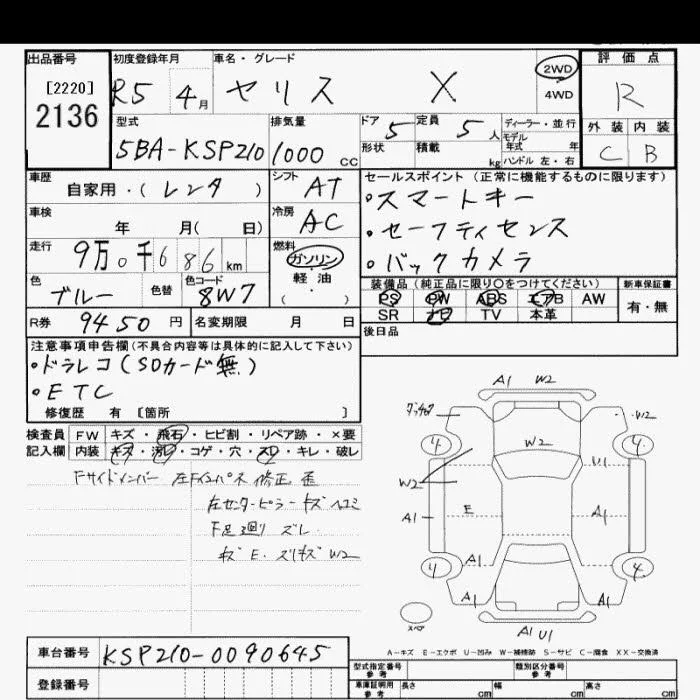 出品番号
[2220]
2136
初度登録年月
R5 4月
車名・グレード
ヤリス X
2WD
4WD
評価点
R
外装 内装
C B
型式
5BA-KSP210
排気量
1000 cc
ドア
5
定員
5 人
ディーラー・並行
モデル
年式 年
形状
積載
kg
ハンドル 左・右
車歴
自家用・(レンタ)
シフト
AT
セールスポイント (正常に機能するものに限ります)
・スマートキー
・セーフティセンス
・バックカメラ
車検
年 月( 日)
冷房
AC
走行
9万0千686km
燃料
ガソリン
軽・油
( ・ )
色
ブルー
色替
色コード
8W7
装備品 (純正品に限り○をつけてください)
PS PW ABS エアB AW
SR ナビ TV 本革
新車保証書
有・無
R券
9450 円
名変期限 月 日
後日品
注意事項申告欄(不具合内容等は具体的に記入して下さい)
・ドラレコ(SDカード無)
・ETC
修復歴 有 [箇所 ]
検査員
記入欄
FW キズ・飛石・ヒビ割・リペア跡・×要
内装 キズ・汚レ・コゲ・穴・スレ・キレ・破レ
Fサイドメンバー 左Fインパネ 修正 歪
左センターピラー キズ ヘコミ
F足廻り ズレ
キズ E. スリキズ W2
A1 W2
W2
4 4
W2
W2 U1
A1 E A1
A1
4 4
A1 A1
A1 U1
A-キズ E-エクボ U-凹み W-補修跡 S-サビ C-腐食 XX-交換済
車台番号
KSP210-0090645
登録番号
型式指定番号
参考
類別区分番号
参考
車庫証明用
参考
長さ cm 幅 cm 高さ cm